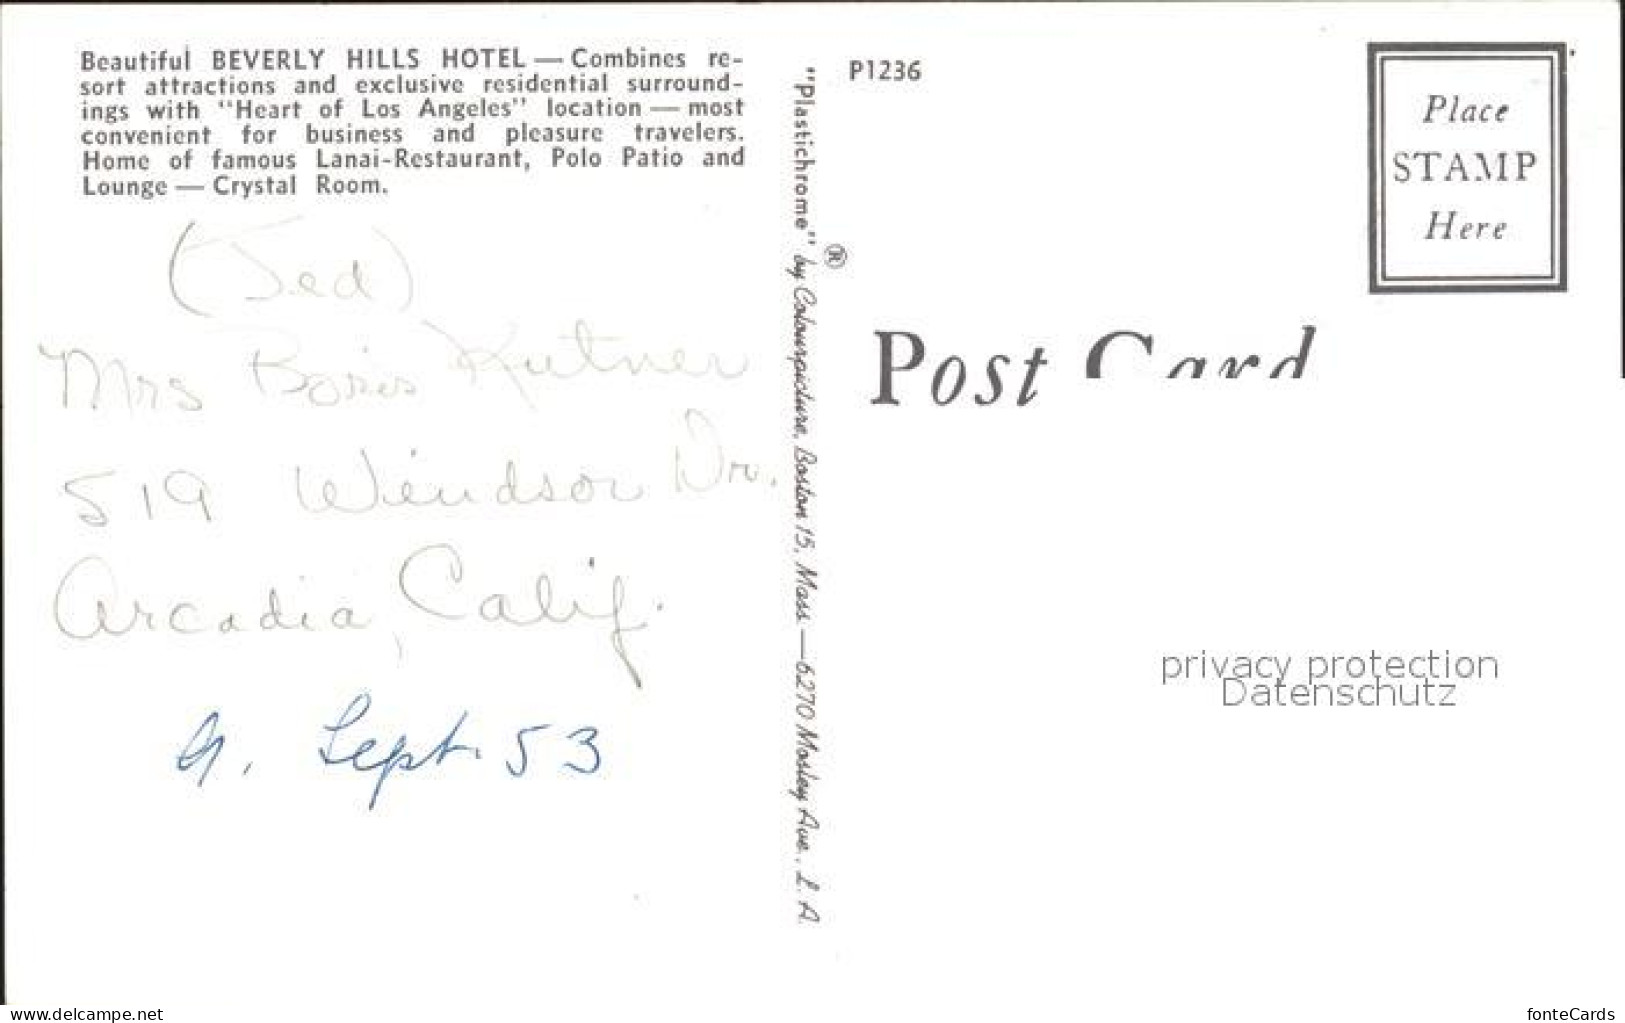 Beautiful BEVERLY HILLS HOTEL — Combines re-
sort attractions and exclusive residential surround-
ings with "Heart of Los Angeles" location — most
convenient for business and pleasure travelers.
Home of famous Lanai-Restaurant, Polo Patio and
Lounge — Crystal Room.
(Jed)
Mrs Boris Kutner
519 Windsor Dr.
Arcadia, Calif.
9. Sept. 53
"Plastichrome" ® by Colourpicture, Boston 15, Mass — 6270 Mosley Ave., L. A.
P1236
Place
STAMP
Here
Post Card
privacy protection
Datenschutz
www.delcampe.net
fonteCards